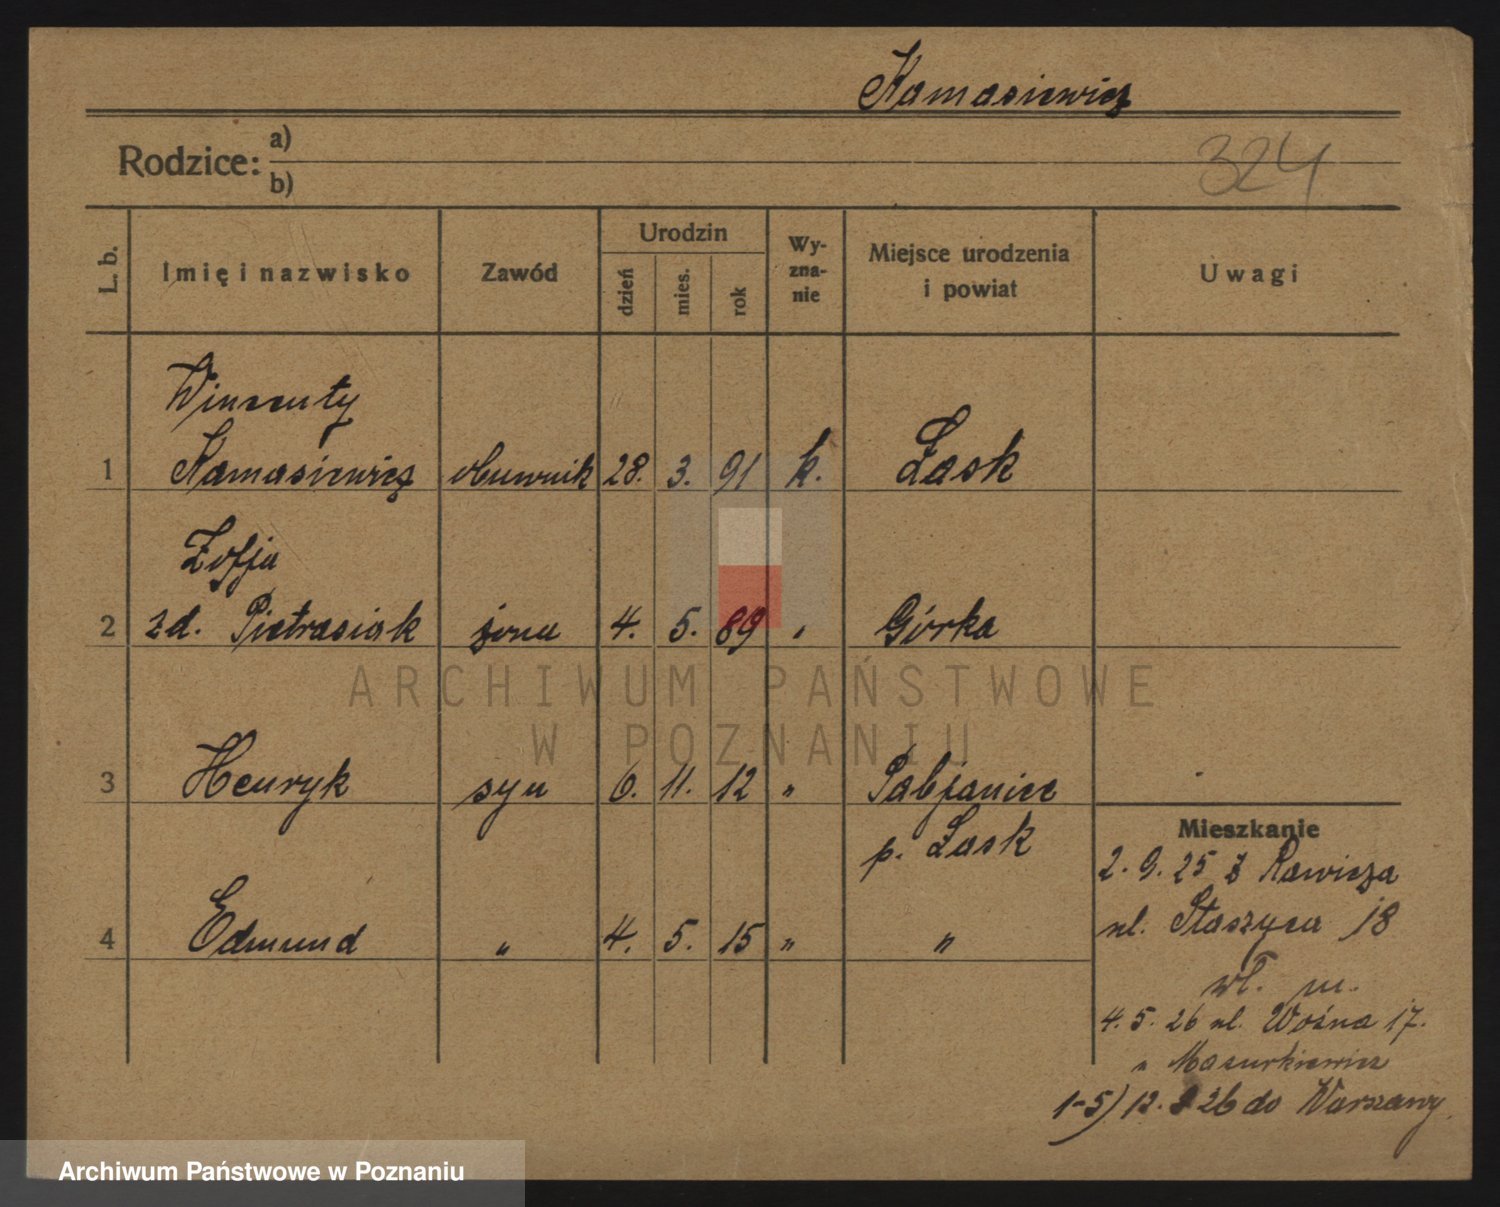 Kamasiewicz
Rodzice: a)
b)
324
L. b. Imię i nazwisko Zawód Urodzin dzień mies. rok Wy-zna-nie Miejsce urodzenia i powiat Uwagi
Wincenty
1 Kamasiewicz obuwnik 28. 3. 91 k. Łask
Zofja
2 zd. Pietrasiak żona 4. 5. 89 " Górka
3 Henryk syn 6. 11. 12 " Pabjanice
p. Łask
4 Edmund " 4. 5. 15 " "
Mieszkanie
2. 9. 25 z Rawicza
ul. Staszyca 18
wł. m.
4. 5. 26 ul. Woźna 17.
" Mazurkiewicz
1-5) 12. 26 do Warszawy
ARCHIWUM PAŃSTWOWE
W POZNANIU
Archiwum Państwowe w Poznaniu